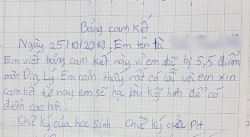 Bảng cam kết
Ngày 25/10/2019, Em tên là
Em viết bảng cam kết này vì em đã bị 5,5 điểm
môn Địa Lý. Em cảm thấy rất có lỗi và em xin
cam kết từ nay em sẽ học bài kỹ hơn để có
điểm cao hơn.
Chữ ký của học sinh Chữ ký của PH